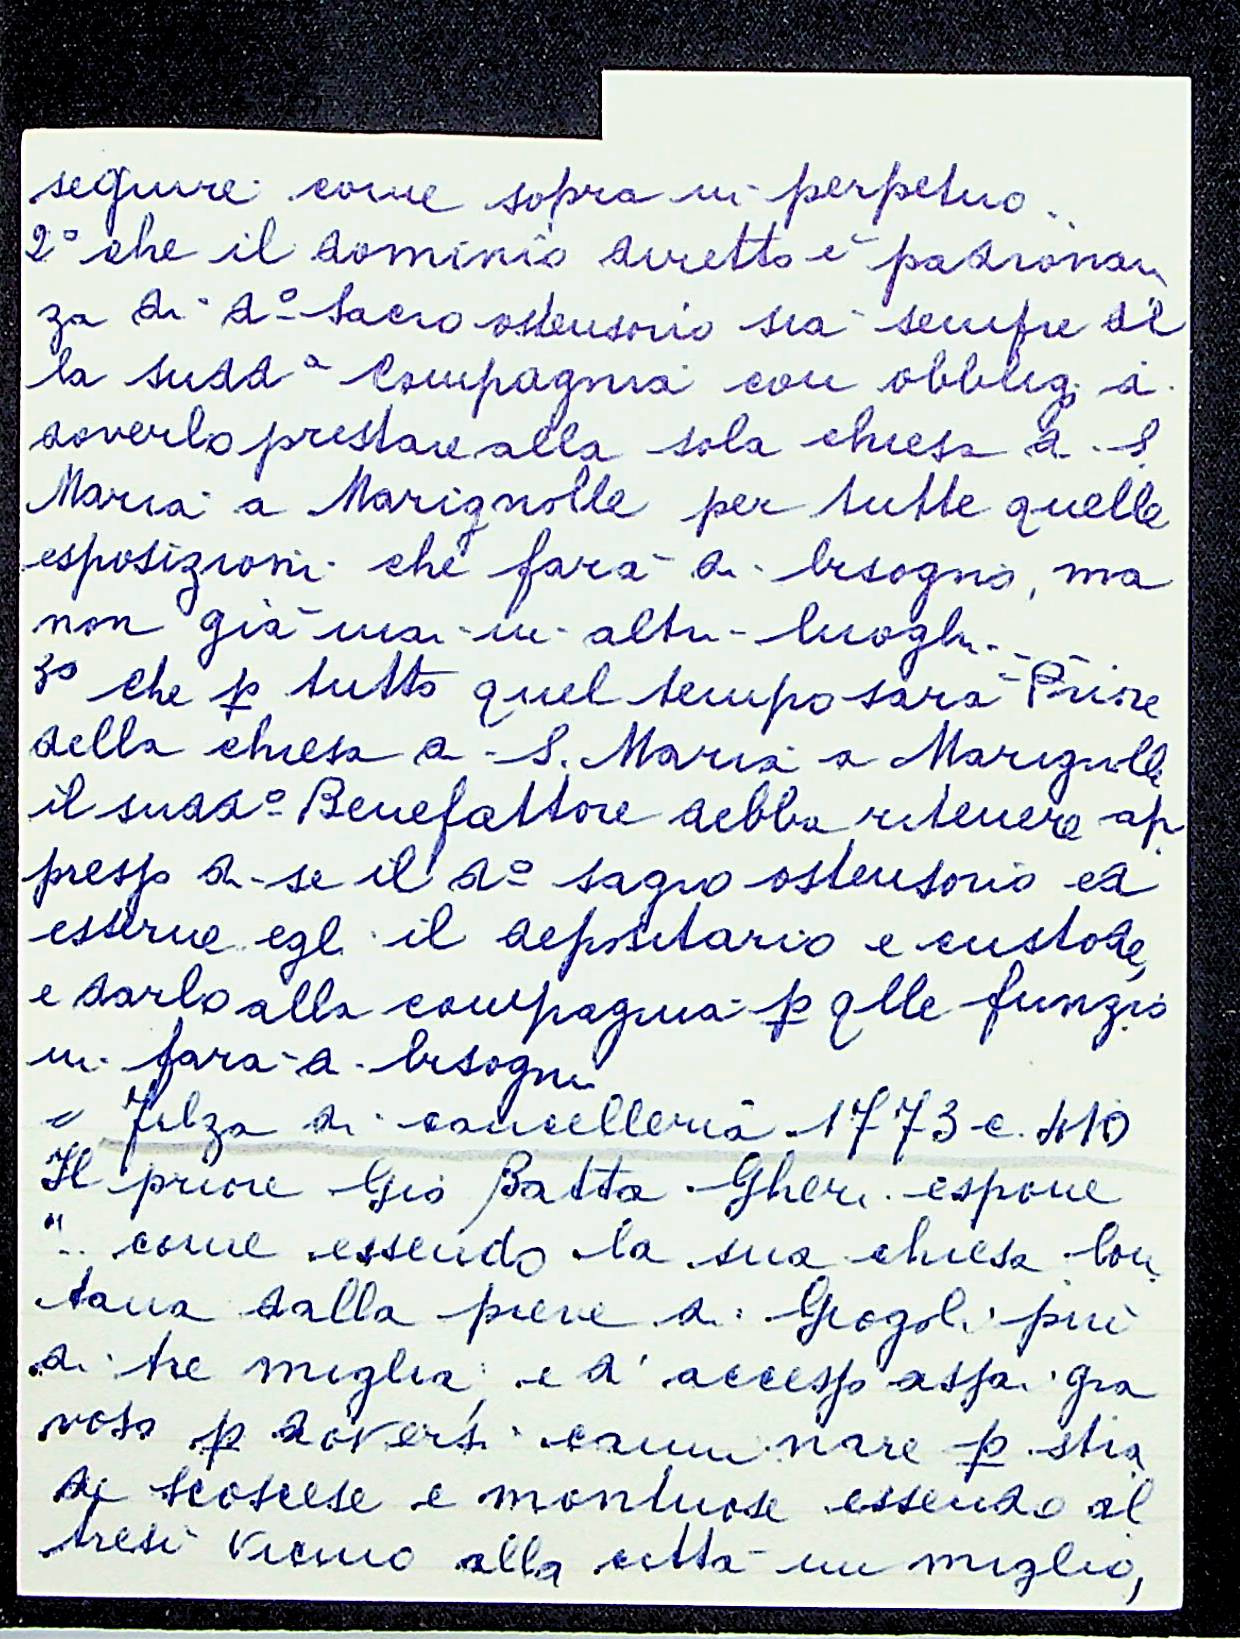 seguire come sopra in perpetuo..
2° che il dominio diretto e padronan
za di d° Sacro ostensorio sia sempre del
la sudd^a Compagnia con obblig. di
doverlo prestare alla sola chiesa di S.
Maria a Marignolle per tutte quelle
esposizioni che farà di bisogno, ma
non già mai in altri luoghi...
3° che p tutto quel tempo sarà Priore
della chiesa di S. Maria a Marignolle
il sudd° Benefattore debba ritenere ap
presso di se il d° sagro ostensorio ed
esserne egli il depositario e custode,
e darlo alla compagnia p qlle funzio
ni farà di bisogni
Filza di cancelleria 1773 c. 410
Il priore Gio Batta Gheri espone
".. come essendo la sua chiesa lon
tana dalla pieve di Giogoli più
di tre miglia, e d'accesso assai gra
voso p doversi camminare p stra
de scoscese e montuose essendo al
tresì vicino alla città un miglio,